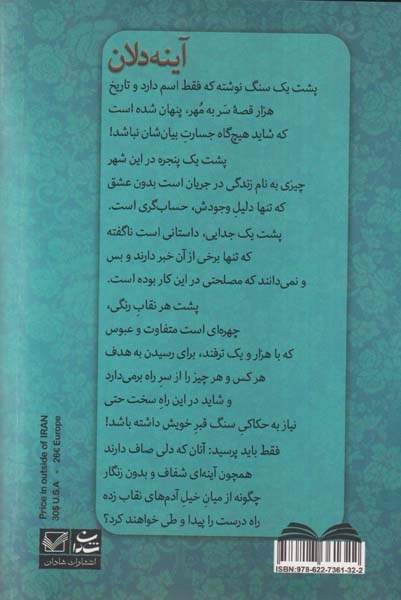 آینه‌دلان
پشت یک سنگ نوشته که فقط اسم دارد و تاریخ
هزار قصهٔ سَر به مُهر، پنهان شده است
که شاید هیچ‌گاه جسارتِ بیان‌شان نباشد!
پشت یک پنجره در این شهر
چیزی به نام زندگی در جریان است بدون عشق
که تنها دلیلِ وجودش، حساب‌گری است.
پشت یک جدایی، داستانی است ناگفته
که تنها برخی از آن خبر دارند و بس
و نمی‌دانند که مصلحتی در این کار بوده است.
پشت هر نقابِ رنگی،
چهره‌ای است متفاوت و عبوس
که با هزار و یک ترفند، برای رسیدن به هدف
هر کس و هر چیز را از سرِ راه برمی‌دارد
و شاید در این راهِ سخت حتی
نیاز به حکاکیِ سنگ قبرِ خویش داشته باشد!
فقط باید پرسید: آنان که دلی صاف دارند
همچون آینه‌ای شفاف و بدون زنگار
چگونه از میانِ خیلِ آدم‌های نقاب زده
راه درست را پیدا و طی خواهند کرد؟
Price in outside of IRAN
30$ U.S.A - 26€ Europe
شادان
انتشارات شادان
ISBN: 978-622-7361-32-2